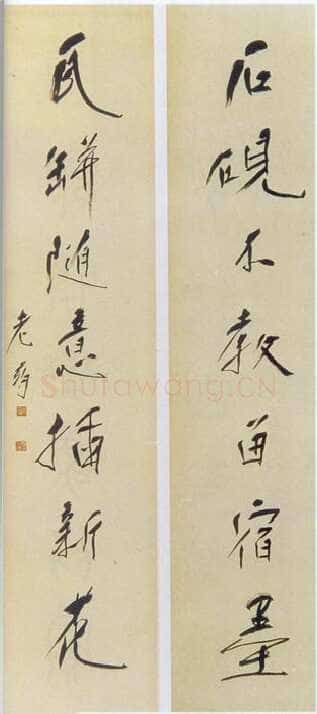 石硯不教留宿墨
瓦缾隨意插新花
老
Shufawang.CN